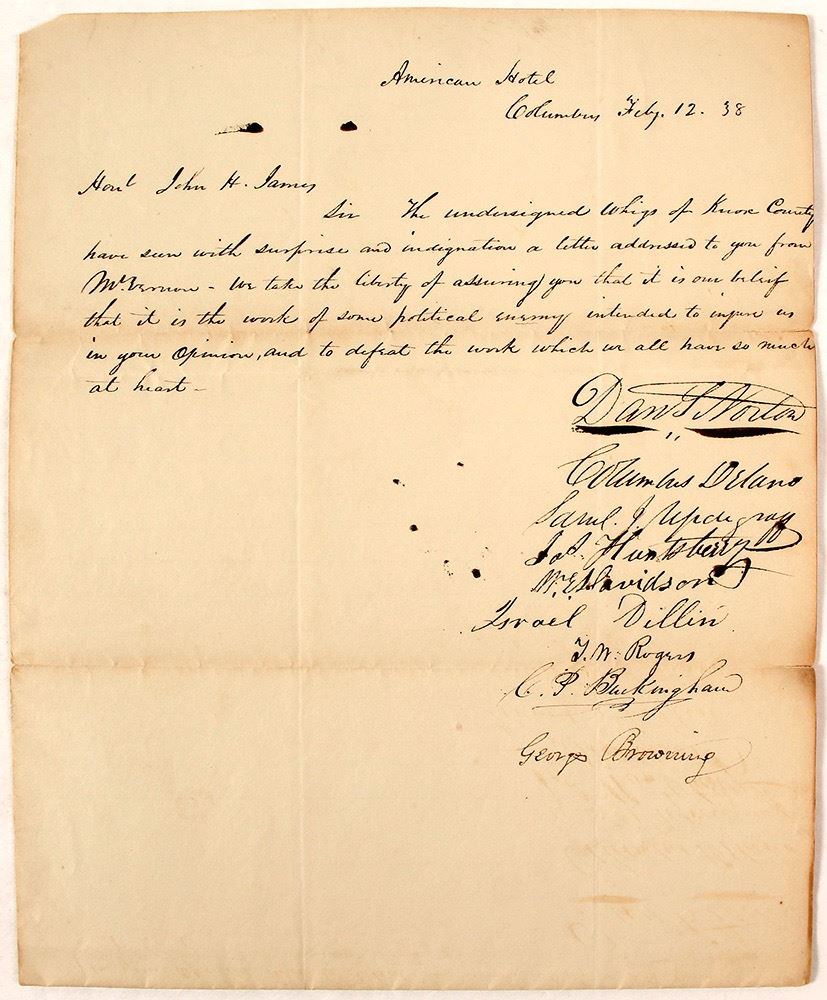 American Hotel
Columbus Feby. 12. 38
Honl John H. James
Sir The undersigned Whigs of Knox County
have seen with surprise and indignation a letter addressed to you from
Mt. Vernon - We take the liberty of assuring you that it is our beleif
that it is the work of some political enemy intended to injure us
in your Opinion, and to defeat the work which we all have so much
at heart -
Danl S Norton
Columbus Delano
Saml. J. Updegraff
Huntsberry
Wm E Davidson
Israel Dillin
T. W. Rogers
C. P. Buckingham
George Browning